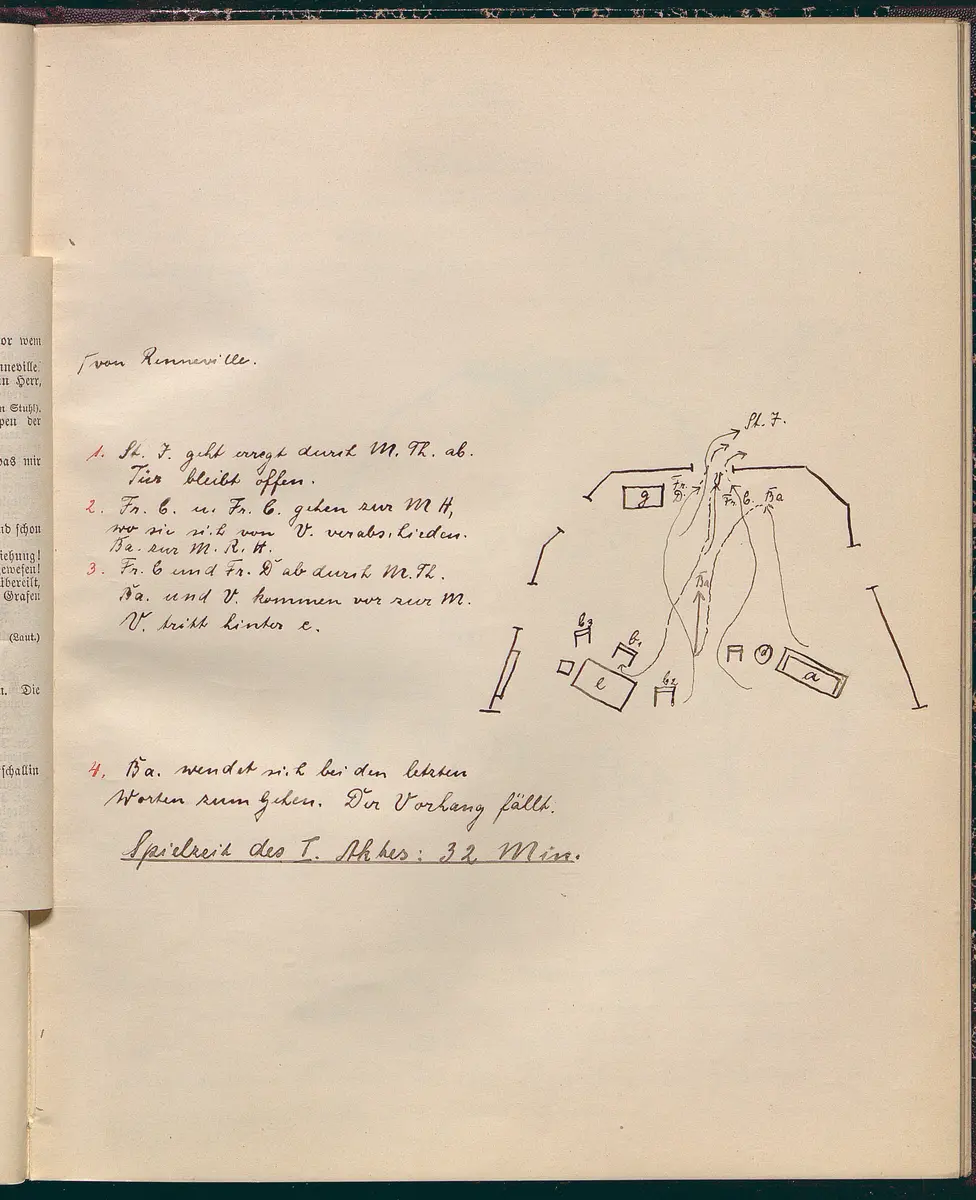 or wem
nneville
n Herr,
n Stuhl).
pen der
das mir
nd schon
iehung!
gewesen!
übereilt,
Grafen
(Laut.)
n. Die
schallin
von Renneville.
1. St. F. geht erregt durch M. Th. ab.
Tür bleibt offen.
2. Fr. C. u. Fr. C. gehen zur M H,
wo sie sich von V. verabschieden.
Ba. zur M. R. H.
3. Fr. C und Fr. D ab durch M. Th.
Ba. und V. kommen vor zur M.
V. tritt hinter e.
4. Ba. wendet sich bei den letzten
Worten zum Gehen. Der Vorhang fällt.
Spielzeit des I. Aktes: 32 Min.
St. F.
g
Fr. D.
V
Fr. C.
Ba
Ba
b3
b1
e
b2
d
a